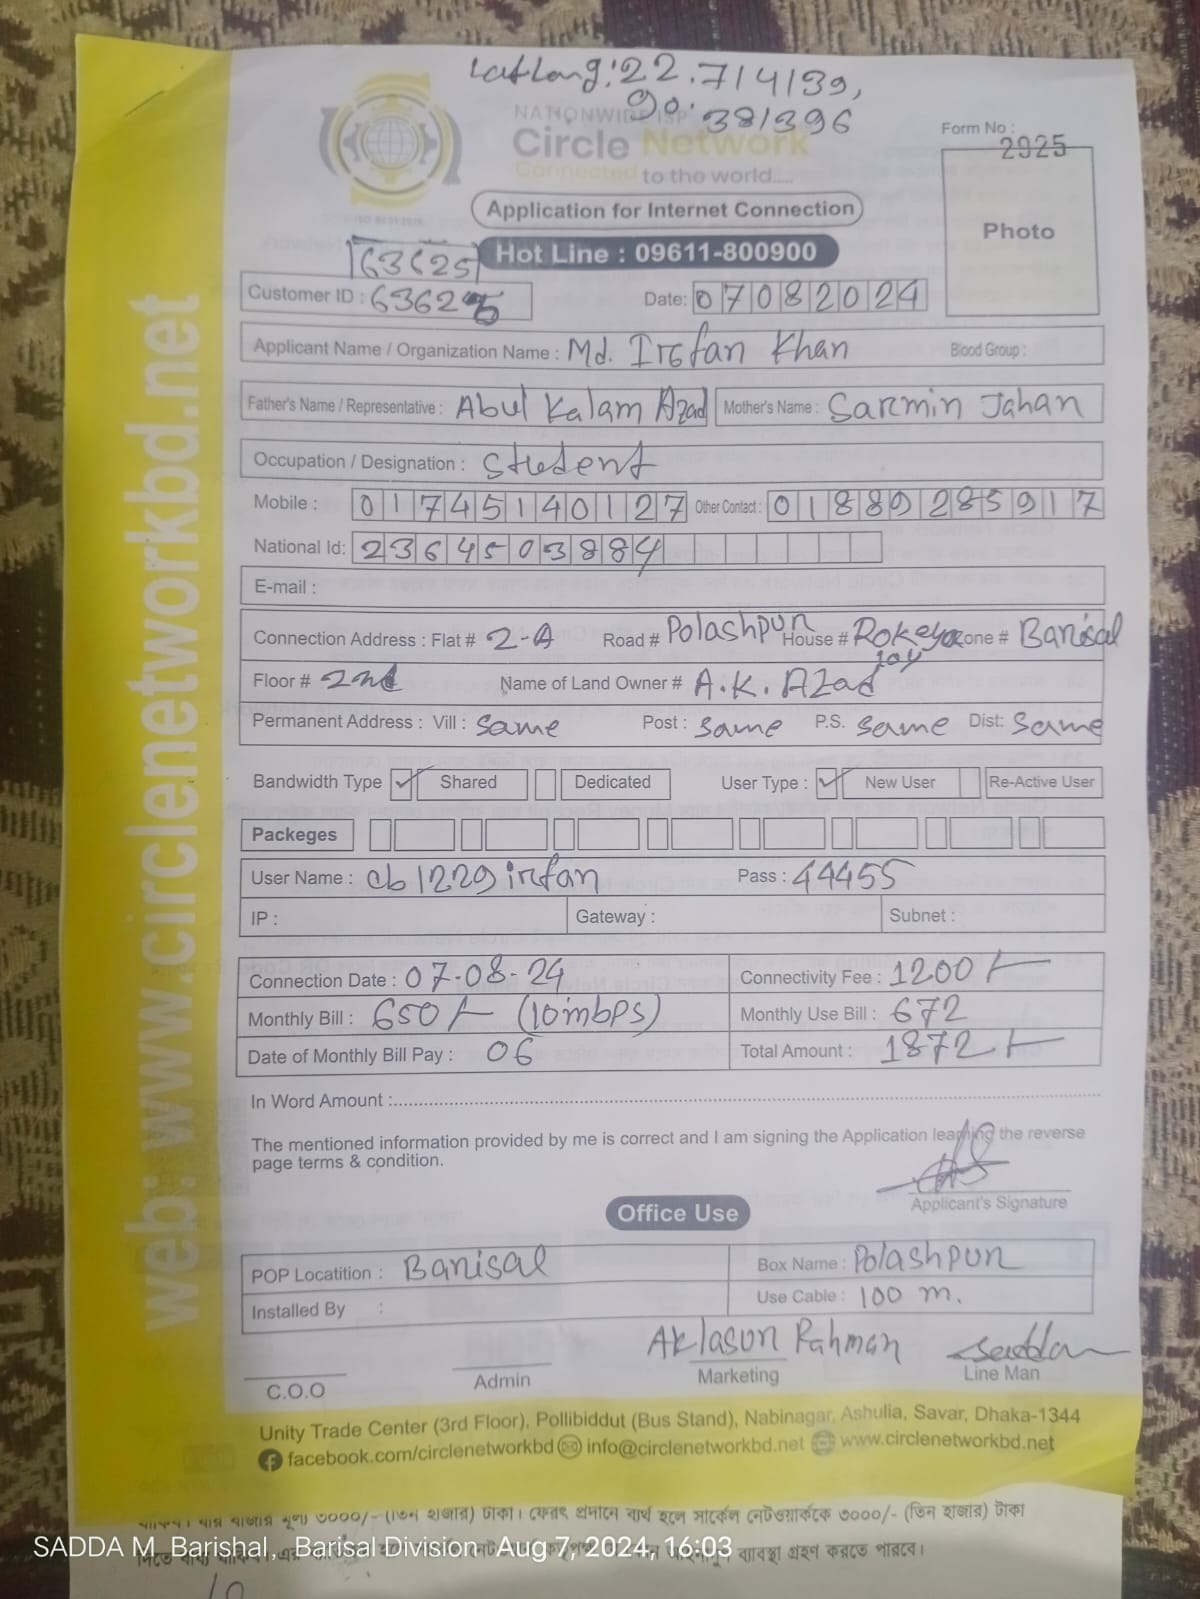 Lat Long: 22.714139,
90.381396
NATIONWIDE ISP
Circle Network
Connected to the world.....
Form No :
2925
Photo
Application for Internet Connection
63625
Hot Line : 09611-800900
Customer ID : 63625
Date: 07082024
Applicant Name / Organization Name : Md. Irfan Khan Blood Group :
Father's Name / Representative : Abul Kalam Azad Mother's Name : Sarmin Jahan
Occupation / Designation : Student
Mobile : 01745140127 Other Contact : 01889285917
National Id: 2364503884
E-mail :
Connection Address : Flat # 2-A Road # Polashpur House # Rokeya Zone # Barisal
joy
Floor # 2nd Name of Land Owner # A.K. Azad
Permanent Address : Vill : Same Post : Same P.S. Same Dist: Same
Bandwidth Type ✓ Shared Dedicated User Type : ✓ New User Re-Active User
Packeges
User Name : cb1229irfan Pass : 44455
IP : Gateway : Subnet :
Connection Date : 07-08-24 Connectivity Fee : 1200/-
Monthly Bill : 650/- (10mbps) Monthly Use Bill : 672
Date of Monthly Bill Pay : 06 Total Amount : 1872/-
In Word Amount :
The mentioned information provided by me is correct and I am signing the Application learning the reverse
page terms & condition.
Applicant's Signature
Office Use
POP Locatition : Barisal Box Name : Polashpur
Installed By : Use Cable : 100 m.
Aklasur Rahman Sadda
C.O.O Admin Marketing Line Man
Unity Trade Center (3rd Floor), Pollibiddut (Bus Stand), Nabinagar, Ashulia, Savar, Dhaka-1344
facebook.com/circlenetworkbd info@circlenetworkbd.net www.circlenetworkbd.net
web: www.circlenetworkbd.net
মূল্য ৩০০০/- (তিন হাজার) টাকা। ফেরৎ প্রদানে ব্যর্থ হলে সার্কেল নেটওয়ার্ককে ৩০০০/- (তিন হাজার) টাকা
ব্যাবস্থা গ্রহণ করতে পারবে।
SADDA M Barishal, Barisal Division Aug 7, 2024, 16:03